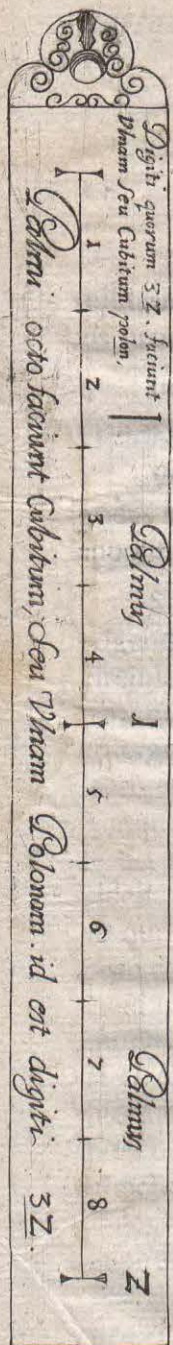 Digiti quorum 3Z. faciunt
Vlnam seu Cubitum polon.
Palmus 1 Palmus Z
1 2 3 4 5 6 7 8
Palmi octo faciunt Cubitum, seu Vlnam Polonam. id est digiti 3Z.